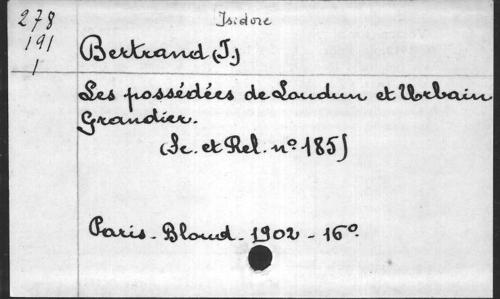 278
191
1
Isidore
Bertrand (I.)
Les possédées de Loudun et Urbain
Grandier.
(Sc. et Rel. nº 185)
Paris - Bloud - 1902 - 16º.